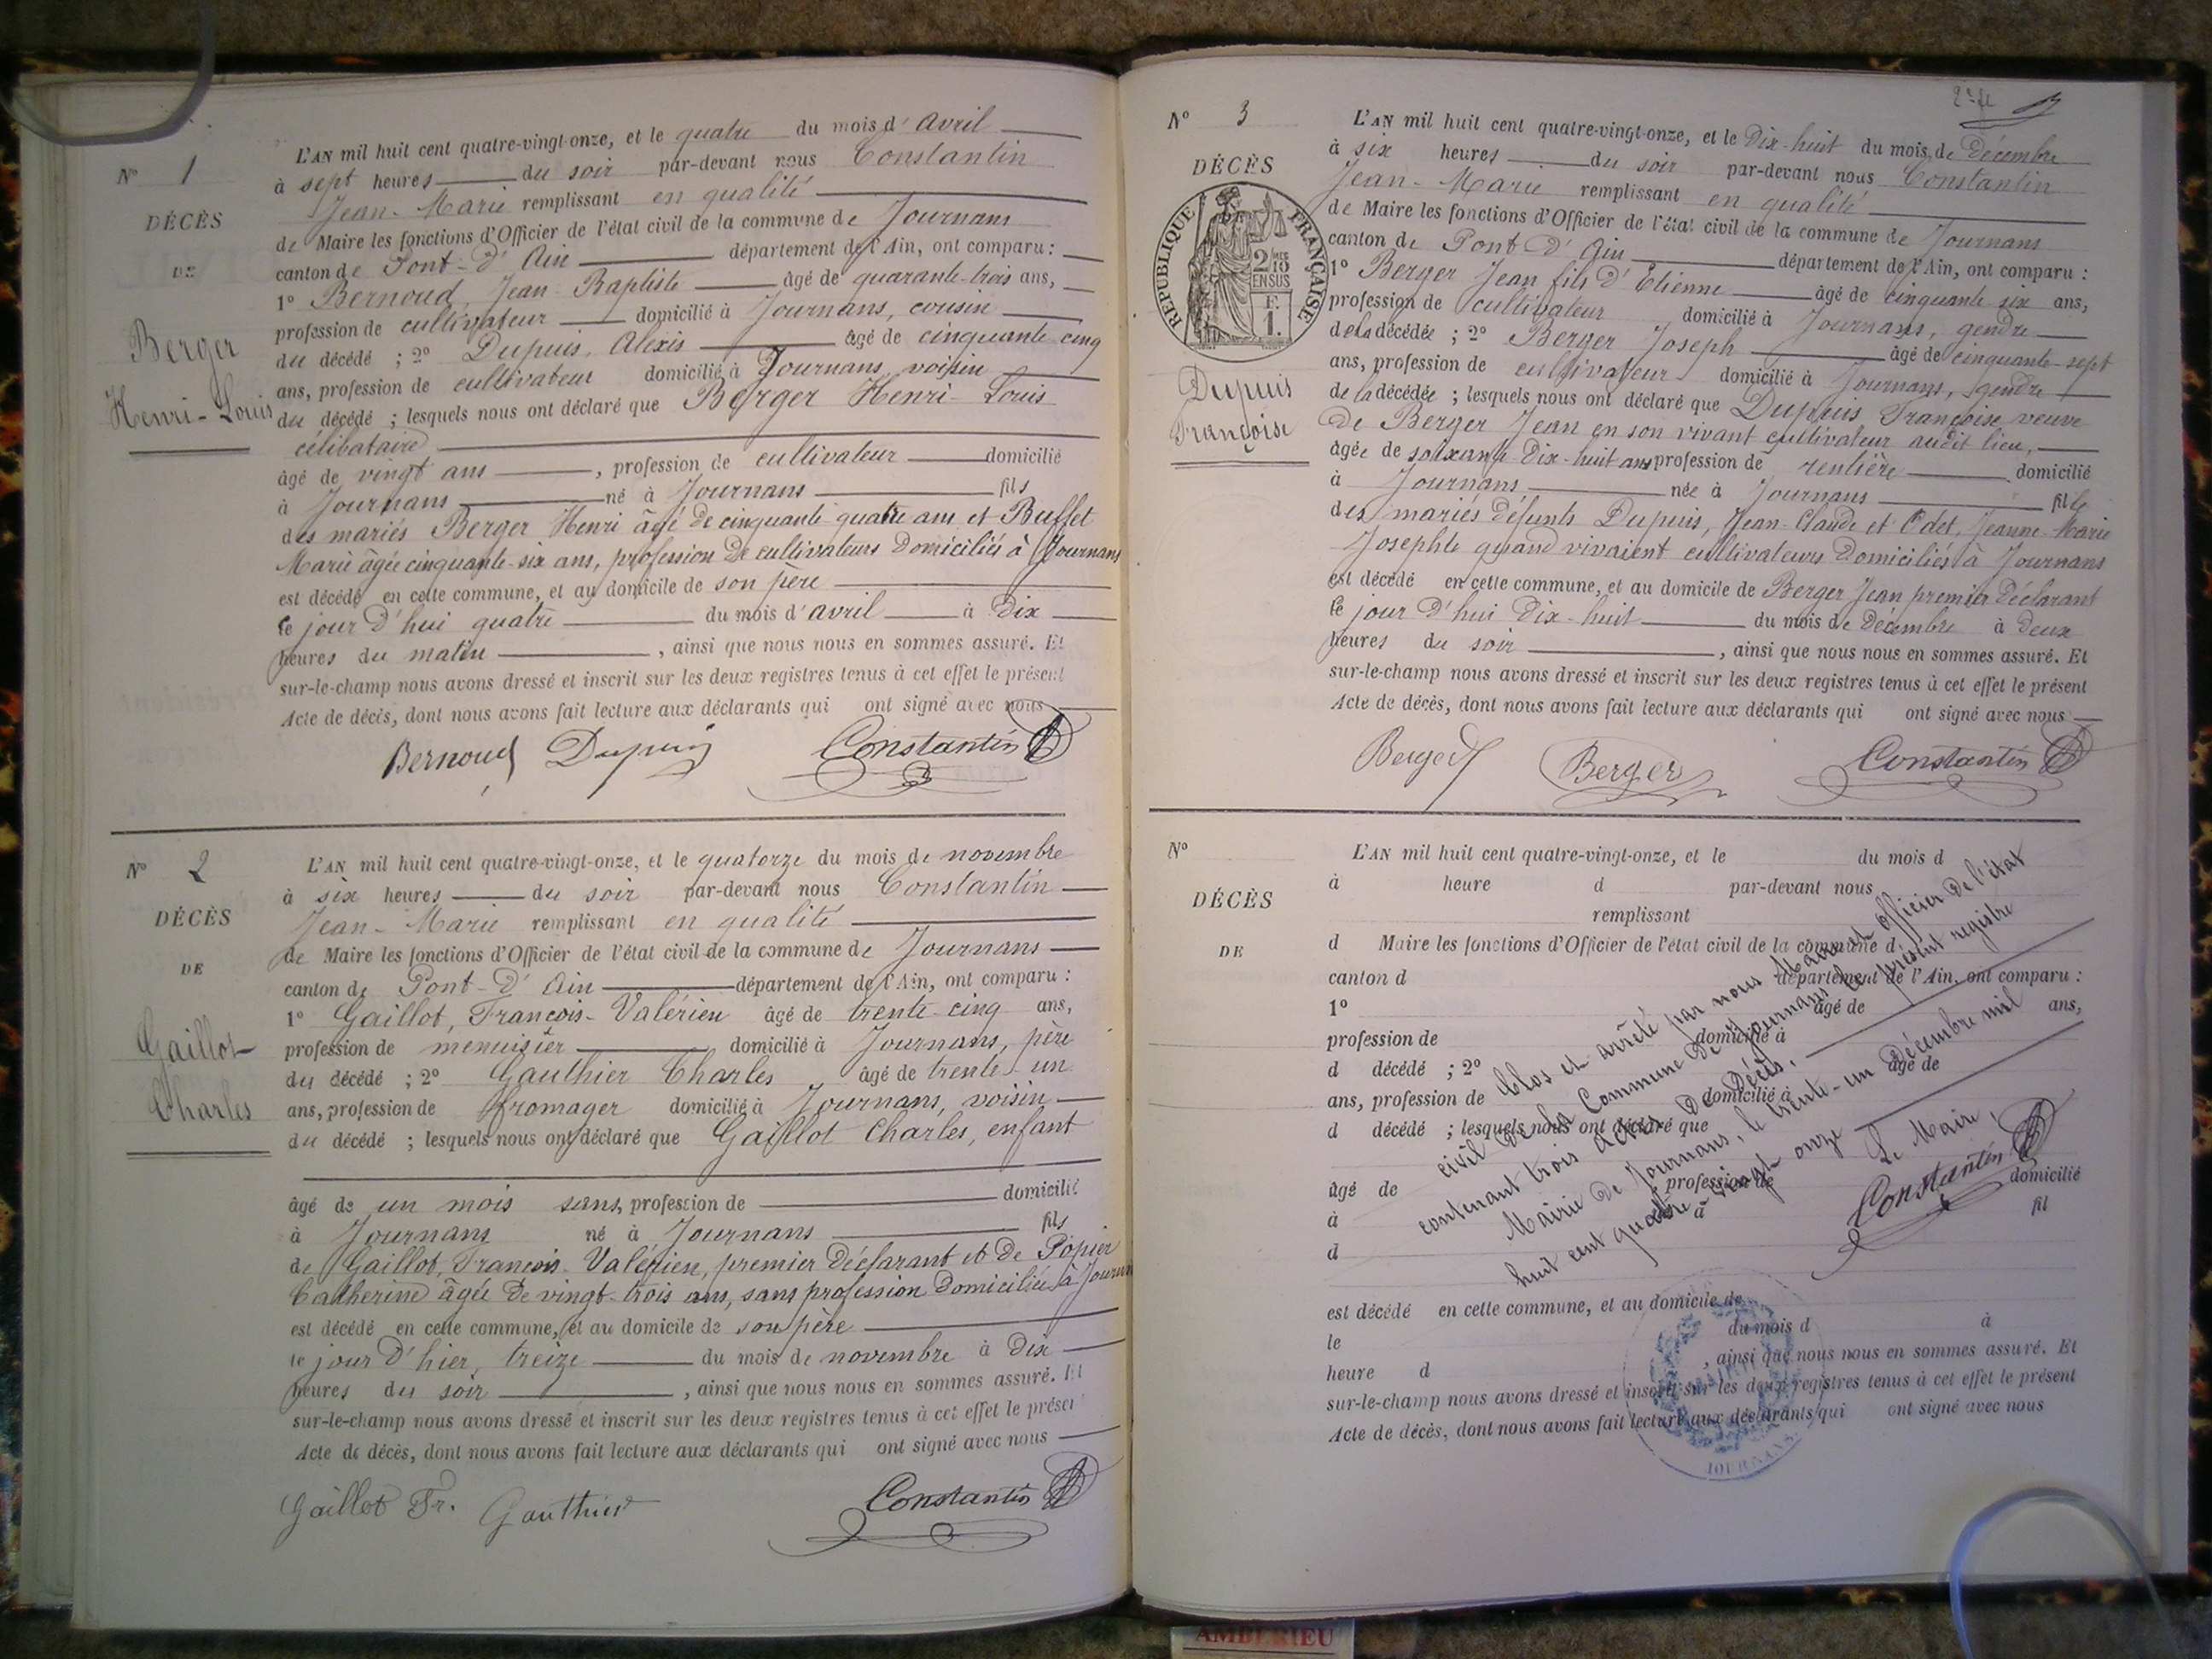 N° 1
DÉCÈS
DE
Berger
Henri-Louis
L'AN mil huit cent quatre-vingt-onze, et le quatre du mois d'avril
à sept heures du soir par-devant nous Constantin
Jean-Marie remplissant en qualité
de Maire les fonctions d'Officier de l'état civil de la commune de Journans
canton de Pont-d'Ain département de l'Ain, ont comparu :
1° Bernoud, Jean-Baptiste âgé de quarante-trois ans,
profession de cultivateur domicilié à Journans, cousin
du décédé ; 2° Dupuis, Alexis âgé de cinquante-cinq
ans, profession de cultivateur domicilié à Journans, voisin
du décédé ; lesquels nous ont déclaré que Berger Henri-Louis
célibataire
âgé de vingt ans, profession de cultivateur domicilié
à Journans né à Journans fils
des mariés Berger Henri âgé de cinquante quatre ans et Buffet
Marie âgée cinquante-six ans, profession de cultivateurs domiciliés à Journans
est décédé en cette commune, et au domicile de son père
le jour d'hui quatre du mois d'avril à dix
heures du matin, ainsi que nous nous en sommes assuré. Et
sur-le-champ nous avons dressé et inscrit sur les deux registres tenus à cet effet le présent
Acte de décès, dont nous avons fait lecture aux déclarants qui ont signé avec nous
Bernoud Dupuis Constantin
N° 2
DÉCÈS
DE
Gaillot
Charles
L'AN mil huit cent quatre-vingt-onze, et le quatorze du mois de novembre
à six heures du soir par-devant nous Constantin
Jean-Marie remplissant en qualité
de Maire les fonctions d'Officier de l'état civil de la commune de Journans
canton de Pont-d'Ain département de l'Ain, ont comparu :
1° Gaillot, François-Valérien âgé de trente-cinq ans,
profession de menuisier domicilié à Journans, père
du décédé ; 2° Gauthier Charles âgé de trente-un
ans, profession de fromager domicilié à Journans, voisin
du décédé ; lesquels nous ont déclaré que Gaillot Charles, enfant
âgé de un mois sans profession de domicilié
à Journans né à Journans fils
de Gaillot, François-Valérien, premier déclarant et de Popier
Catherine âgée de vingt-trois ans, sans profession domiciliée à Journans
est décédé en cette commune, et au domicile de son père
le jour d'hier, treize du mois de novembre à dix
heures du soir, ainsi que nous nous en sommes assuré. Et
sur-le-champ nous avons dressé et inscrit sur les deux registres tenus à cet effet le présent
Acte de décès, dont nous avons fait lecture aux déclarants qui ont signé avec nous
Gaillot Fr. Gauthier Constantin
N° 3
DÉCÈS
RÉPUBLIQUE FRANÇAISE
2/10 EN SUS
F. 1.
Dupuis
Françoise
L'AN mil huit cent quatre-vingt-onze, et le dix-huit du mois de décembre
à six heures du soir par-devant nous Constantin
Jean-Marie remplissant en qualité
de Maire les fonctions d'Officier de l'état civil de la commune de Journans
canton de Pont d'Ain département de l'Ain, ont comparu :
1° Berger Jean fils d'Etienne âgé de cinquante six ans,
profession de cultivateur domicilié à Journans, gendre
de la décédée ; 2° Berger Joseph âgé de cinquante-sept
ans, profession de cultivateur domicilié à Journans, gendre
de la décédée ; lesquels nous ont déclaré que Dupuis Françoise veuve
de Berger Jean en son vivant cultivateur audit lieu,
âgée de soixante-dix-huit ans profession de rentière domicilié
à Journans née à Journans fille
des mariés défunts Dupuis, Jean-Claude et Odet, Jeanne-Marie
Josephte quand vivaient cultivateurs domiciliés à Journans
est décédé en cette commune, et au domicile de Berger Jean premier déclarant
le jour d'hui dix-huit du mois de décembre à deux
heures du soir, ainsi que nous nous en sommes assuré. Et
sur-le-champ nous avons dressé et inscrit sur les deux registres tenus à cet effet le présent
Acte de décès, dont nous avons fait lecture aux déclarants qui ont signé avec nous
Berger Berger Constantin
N°
DÉCÈS
DE
L'AN mil huit cent quatre-vingt-onze, et le du mois d
à heure d par-devant nous
remplissant
d Maire les fonctions d'Officier de l'état civil de la commune d
canton d département de l'Ain, ont comparu :
1° âgé de ans,
profession de domicilié à
d décédé ; 2° âgé de
ans, profession de domicilié à
d décédé ; lesquels nous ont déclaré que
âgé de profession de domicilié
à né à fil
d
est décédé en cette commune, et au domicile de
le du mois d à
heure d, ainsi que nous nous en sommes assuré. Et
sur-le-champ nous avons dressé et inscrit sur les deux registres tenus à cet effet le présent
Acte de décès, dont nous avons fait lecture aux déclarants qui ont signé avec nous
Clos et arrêté par nous Maire et officier de l'état
civil de la Commune de Journans le présent registre
contenant trois actes de décès.
Mairie de Journans, le trente-un décembre mil
huit cent quatre-vingt-onze
Le Maire,
Constantin
JOURNANS
AMBERIEU